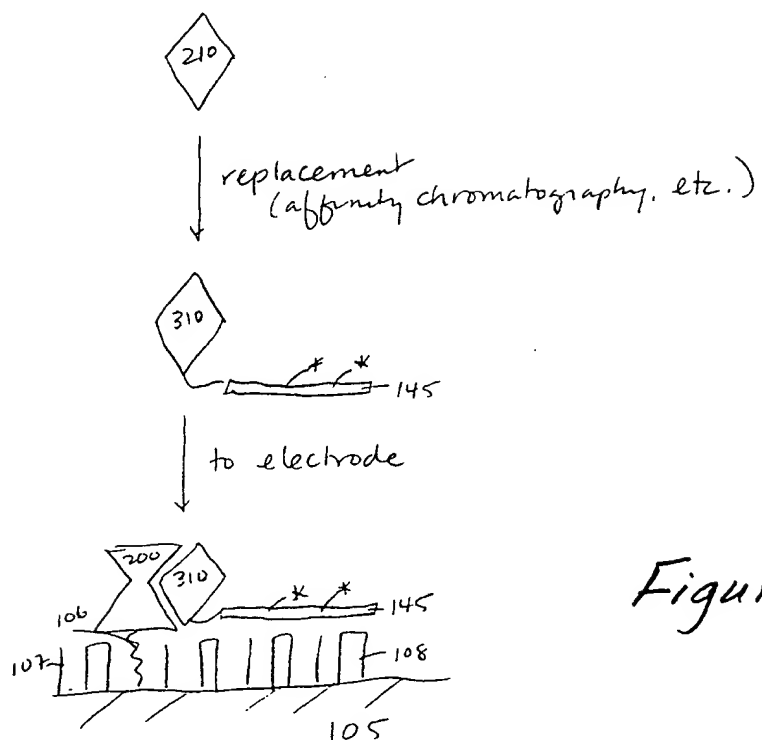 210
replacement
(affinity chromatography, etc.)
310
* *
145
to electrode
200
310
* *
145
106
107
108
105
Figur